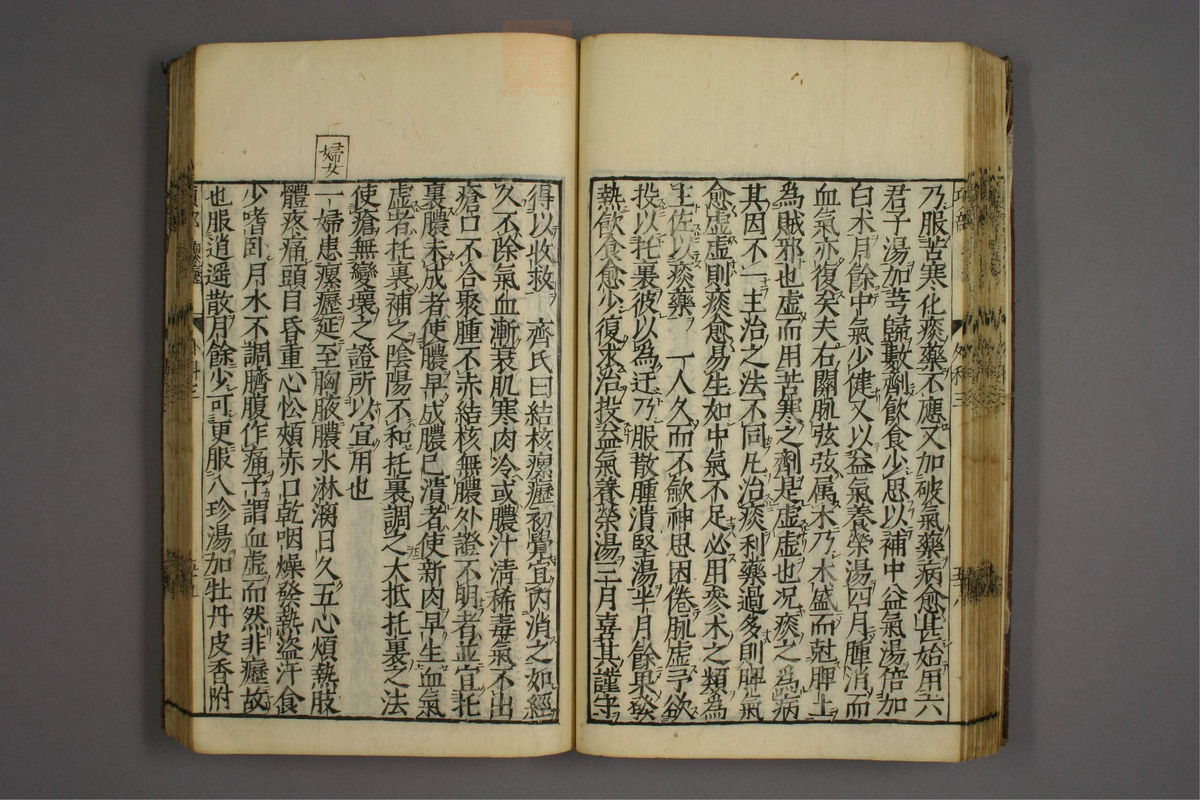 乃服苦寒化痰藥不應又加破氣藥病愈甚始用六
君子湯加芎歸數劑飲食少思以補中益氣湯倍加
白朮月餘中氣少健又以益氣養榮湯四月腫消而
血氣亦復矣夫右關脈弦弦属木乃木盛而尅脾土
為賊邪也虛而用苦寒之劑是虛虛也况痰之為病
其因不一主治之法不同凡治痰利藥過多則脾氣
愈虛虛則痰愈易生如中氣不足必用參朮之類為
主佐以痰藥 一人久而不歛神思困倦脈虛予欲
投以托裏彼以為迂乃服散腫潰堅湯半月餘果發
熱飲食愈少復求治投益氣養榮湯三月喜其謹守
得以收救 齊氏曰結核瘰癧初覺宜内消之如經
久不除氣血漸衰肌寒肉冷或膿汁清稀毒氣不出
瘡口不合聚腫不赤結核無膿外證不明者並宜托
裏膿未成者使膿早成膿已潰者使新肉早生血氣
虛者托裏補之陰陽不和托裏調之大抵托裏之法
使瘡無變壞之證所以宜用也
婦女
一婦患瘰癧延至胸腋膿水淋漓日久五心煩熱肢
體疼痛頭目昏重心忪頰赤口乾咽燥發熱盜汗食
少嗜卧月水不調臍腹作痛予謂血虛而然非癧故
也服逍遥散月餘少可更服八珍湯加牡丹皮香附
外科三